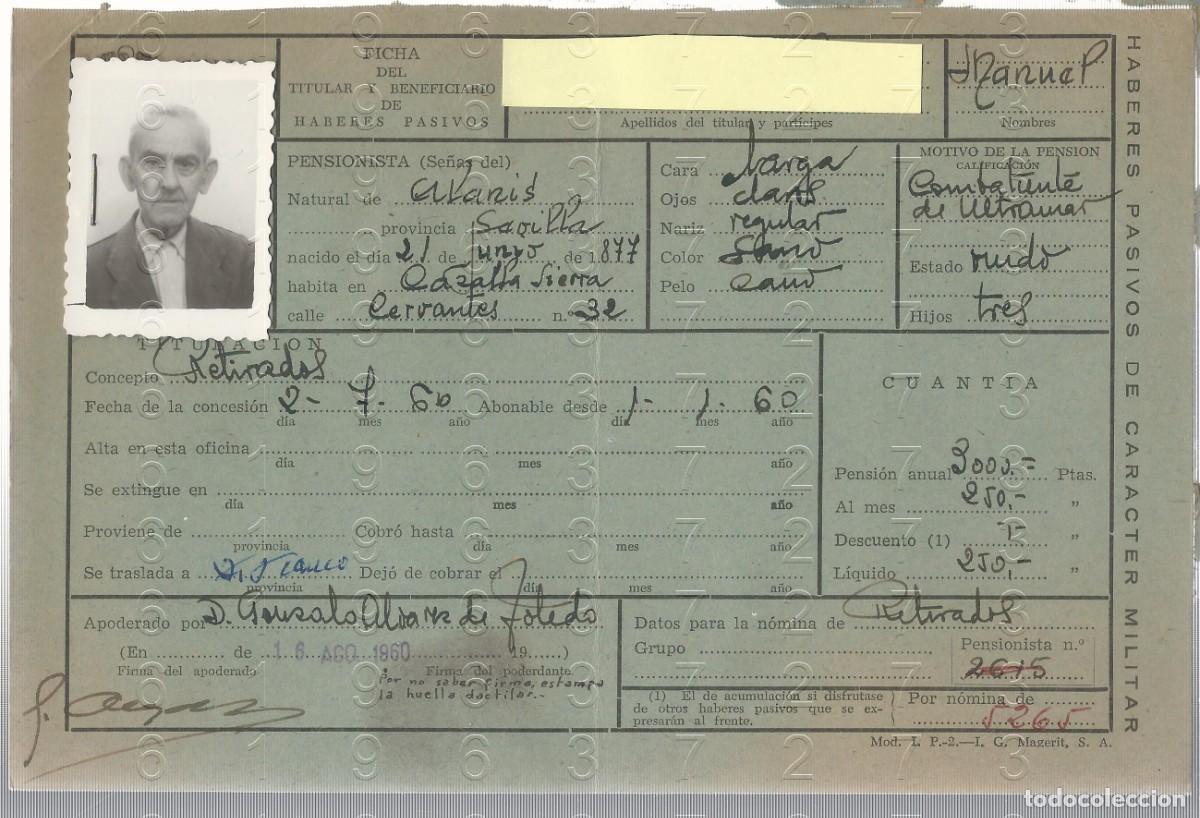 FICHA
DEL
TITULAR Y BENEFICIARIO
DE
HABERES PASIVOS
Apellidos del titular y partícipes
Manuel
Nombres
PENSIONISTA (Señas del)
Natural de Alanis
provincia Sevilla
nacido el día 21 de Junyo de 1.877
habita en Cazalla Sierra
calle Cervantes n.º 32
Cara larga
Ojos claros
Nariz regular
Color Sano
Pelo cano
MOTIVO DE LA PENSION
CALIFICACIÓN
Combatiente
de Ultramar
Estado viudo
Hijos tres
HABERES PASIVOS DE CARACTER MILITAR
TITULACION
Concepto Retirados
Fecha de la concesión 2- 7- 60 Abonable desde 1- 1- 60
día mes año día mes año
Alta en esta oficina
día mes año
Se extingue en
día mes año
Proviene de Cobró hasta
provincia día mes año
Se traslada a Dejó de cobrar el
provincia día mes año
CUANTIA
Pensión anual 3000.= Ptas.
Al mes 250,- "
Descuento (1) "
Líquido 250,- "
Apoderado por D. Gonzalo Alvarez de Toledo
(En de 16 AGO 1960 19 )
Firma del apoderado Firma del poderdante
Por no saber firma, estampa
la huella dactilar.-
Datos para la nómina de Retirados
Grupo
Pensionista n.º
2615
(1) El de acumulación si disfrutase
de otros haberes pasivos que se ex-
presarán al frente.
Por nómina de
5265
Mod. I. P.-2.—I. G. Magerit, S. A.
61963727
todocoleccion